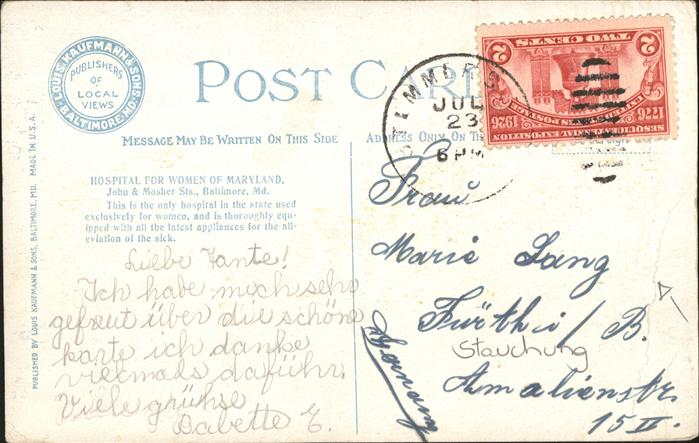 LOUIS KAUFMANN & SONS
PUBLISHERS
OF
LOCAL
VIEWS
BALTIMORE, MD.
POST CARD
JUL
23
6 PM
SESQUICENTENNIAL EXPOSITION
1776 1926
TWO CENTS
2 2
MESSAGE MAY BE WRITTEN ON THIS SIDE
ADDRESS ONLY ON TH
HOSPITAL FOR WOMEN OF MARYLAND,
John & Mosher Sts., Baltimore, Md.
This is the only hospital in the state used
exclusively for women, and is thoroughly equ-
ipped with all the latest appliances for the all-
eviation of the sick.
PUBLISHED BY LOUIS KAUFMANN & SONS, BALTIMORE, MD. MADE IN U.S.A.
Liebe Tante!
Ich habe mich sehr
gefreut über die schöne
karte ich danke
vielmals daführ.
Viele grühse
Babette E.
Frau
Marie Lang
Fürth i/B.
Stauchung
Amalienstr.
15 II.
Germany